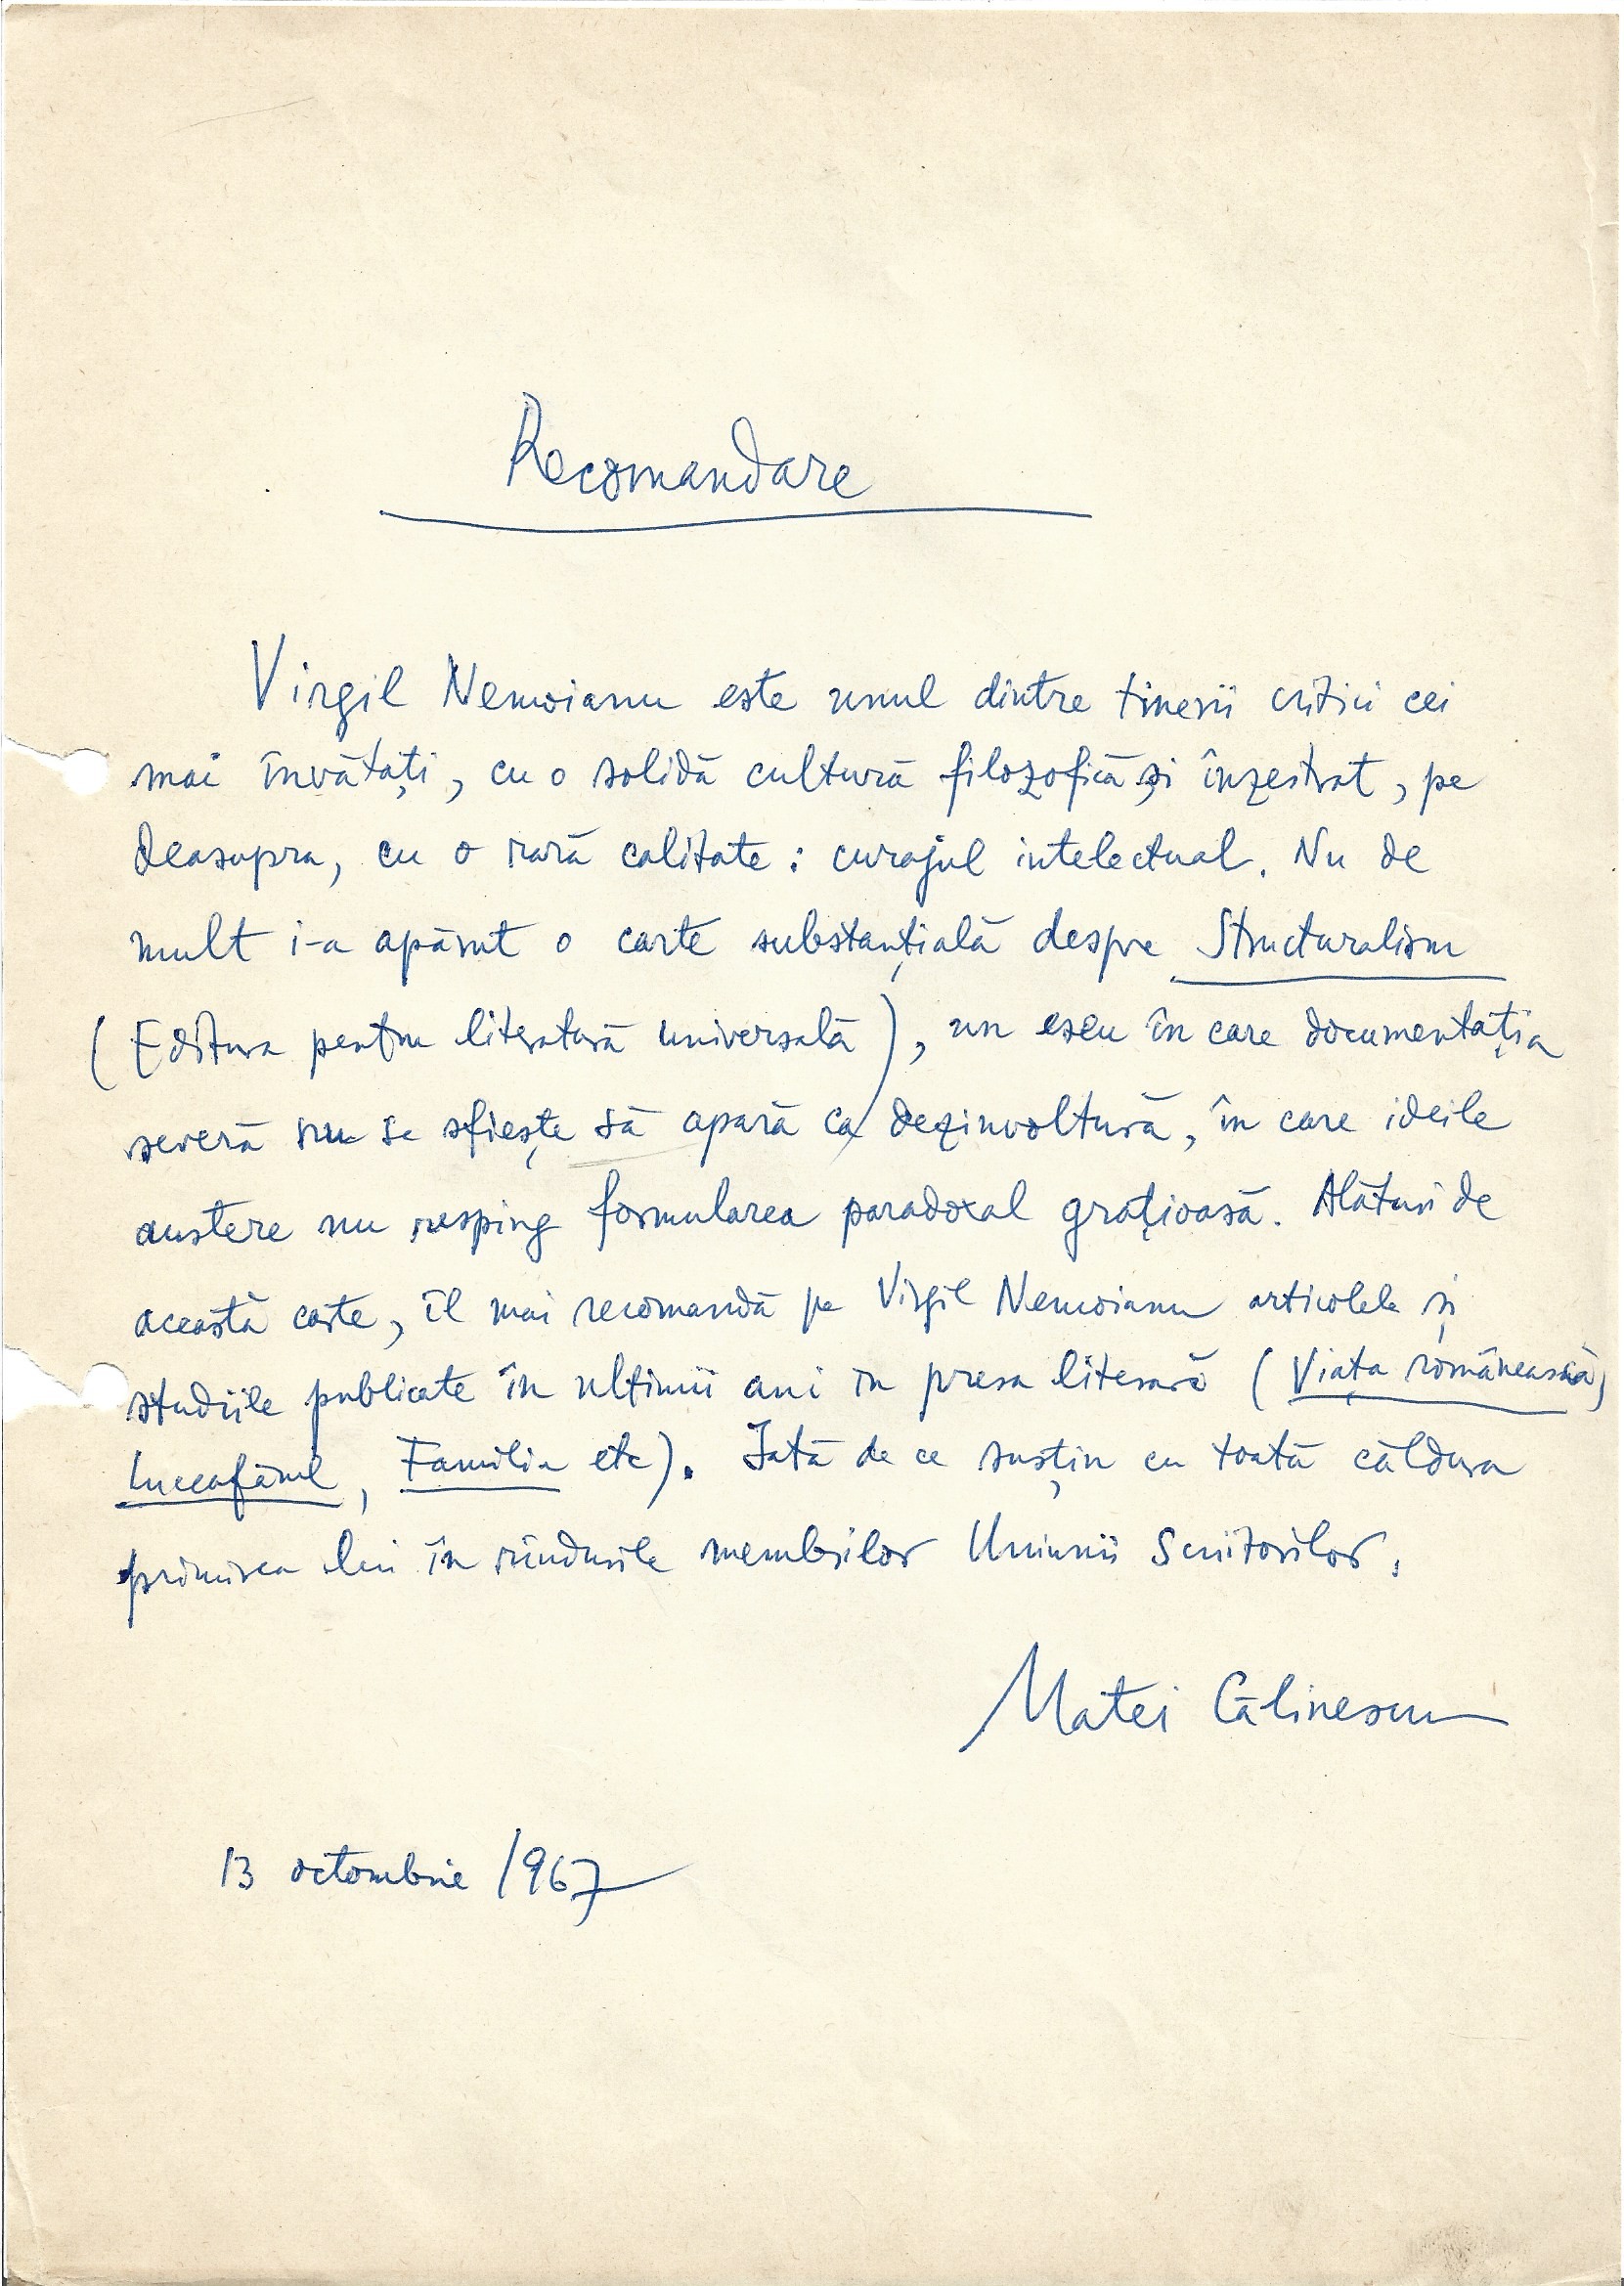 Recomandare
Virgil Nemoianu este unul dintre tinerii critici cei
mai învățați, cu o solidă cultură filozofică și înzestrat, pe
deasupra, cu o rară calitate: curajul intelectual. Nu de
mult i-a apărut o carte substanțială despre Structuralism
(Editura pentru literatură universală), un eseu în care documentația
severă nu se sfiește să apară ca dezinvoltură, în care ideile
austere nu resping formularea paradoxal grațioasă. Alături de
această carte, îl mai recomandă pe Virgil Nemoianu articolele și
studiile publicate în ultimii ani în presa literară (Viața românească,
Luceafărul, Familia etc). Iată de ce susțin cu toată căldura
primirea lui în rîndurile membrilor Uniunii Scriitorilor.
Matei Călinescu
13 octombrie 1967